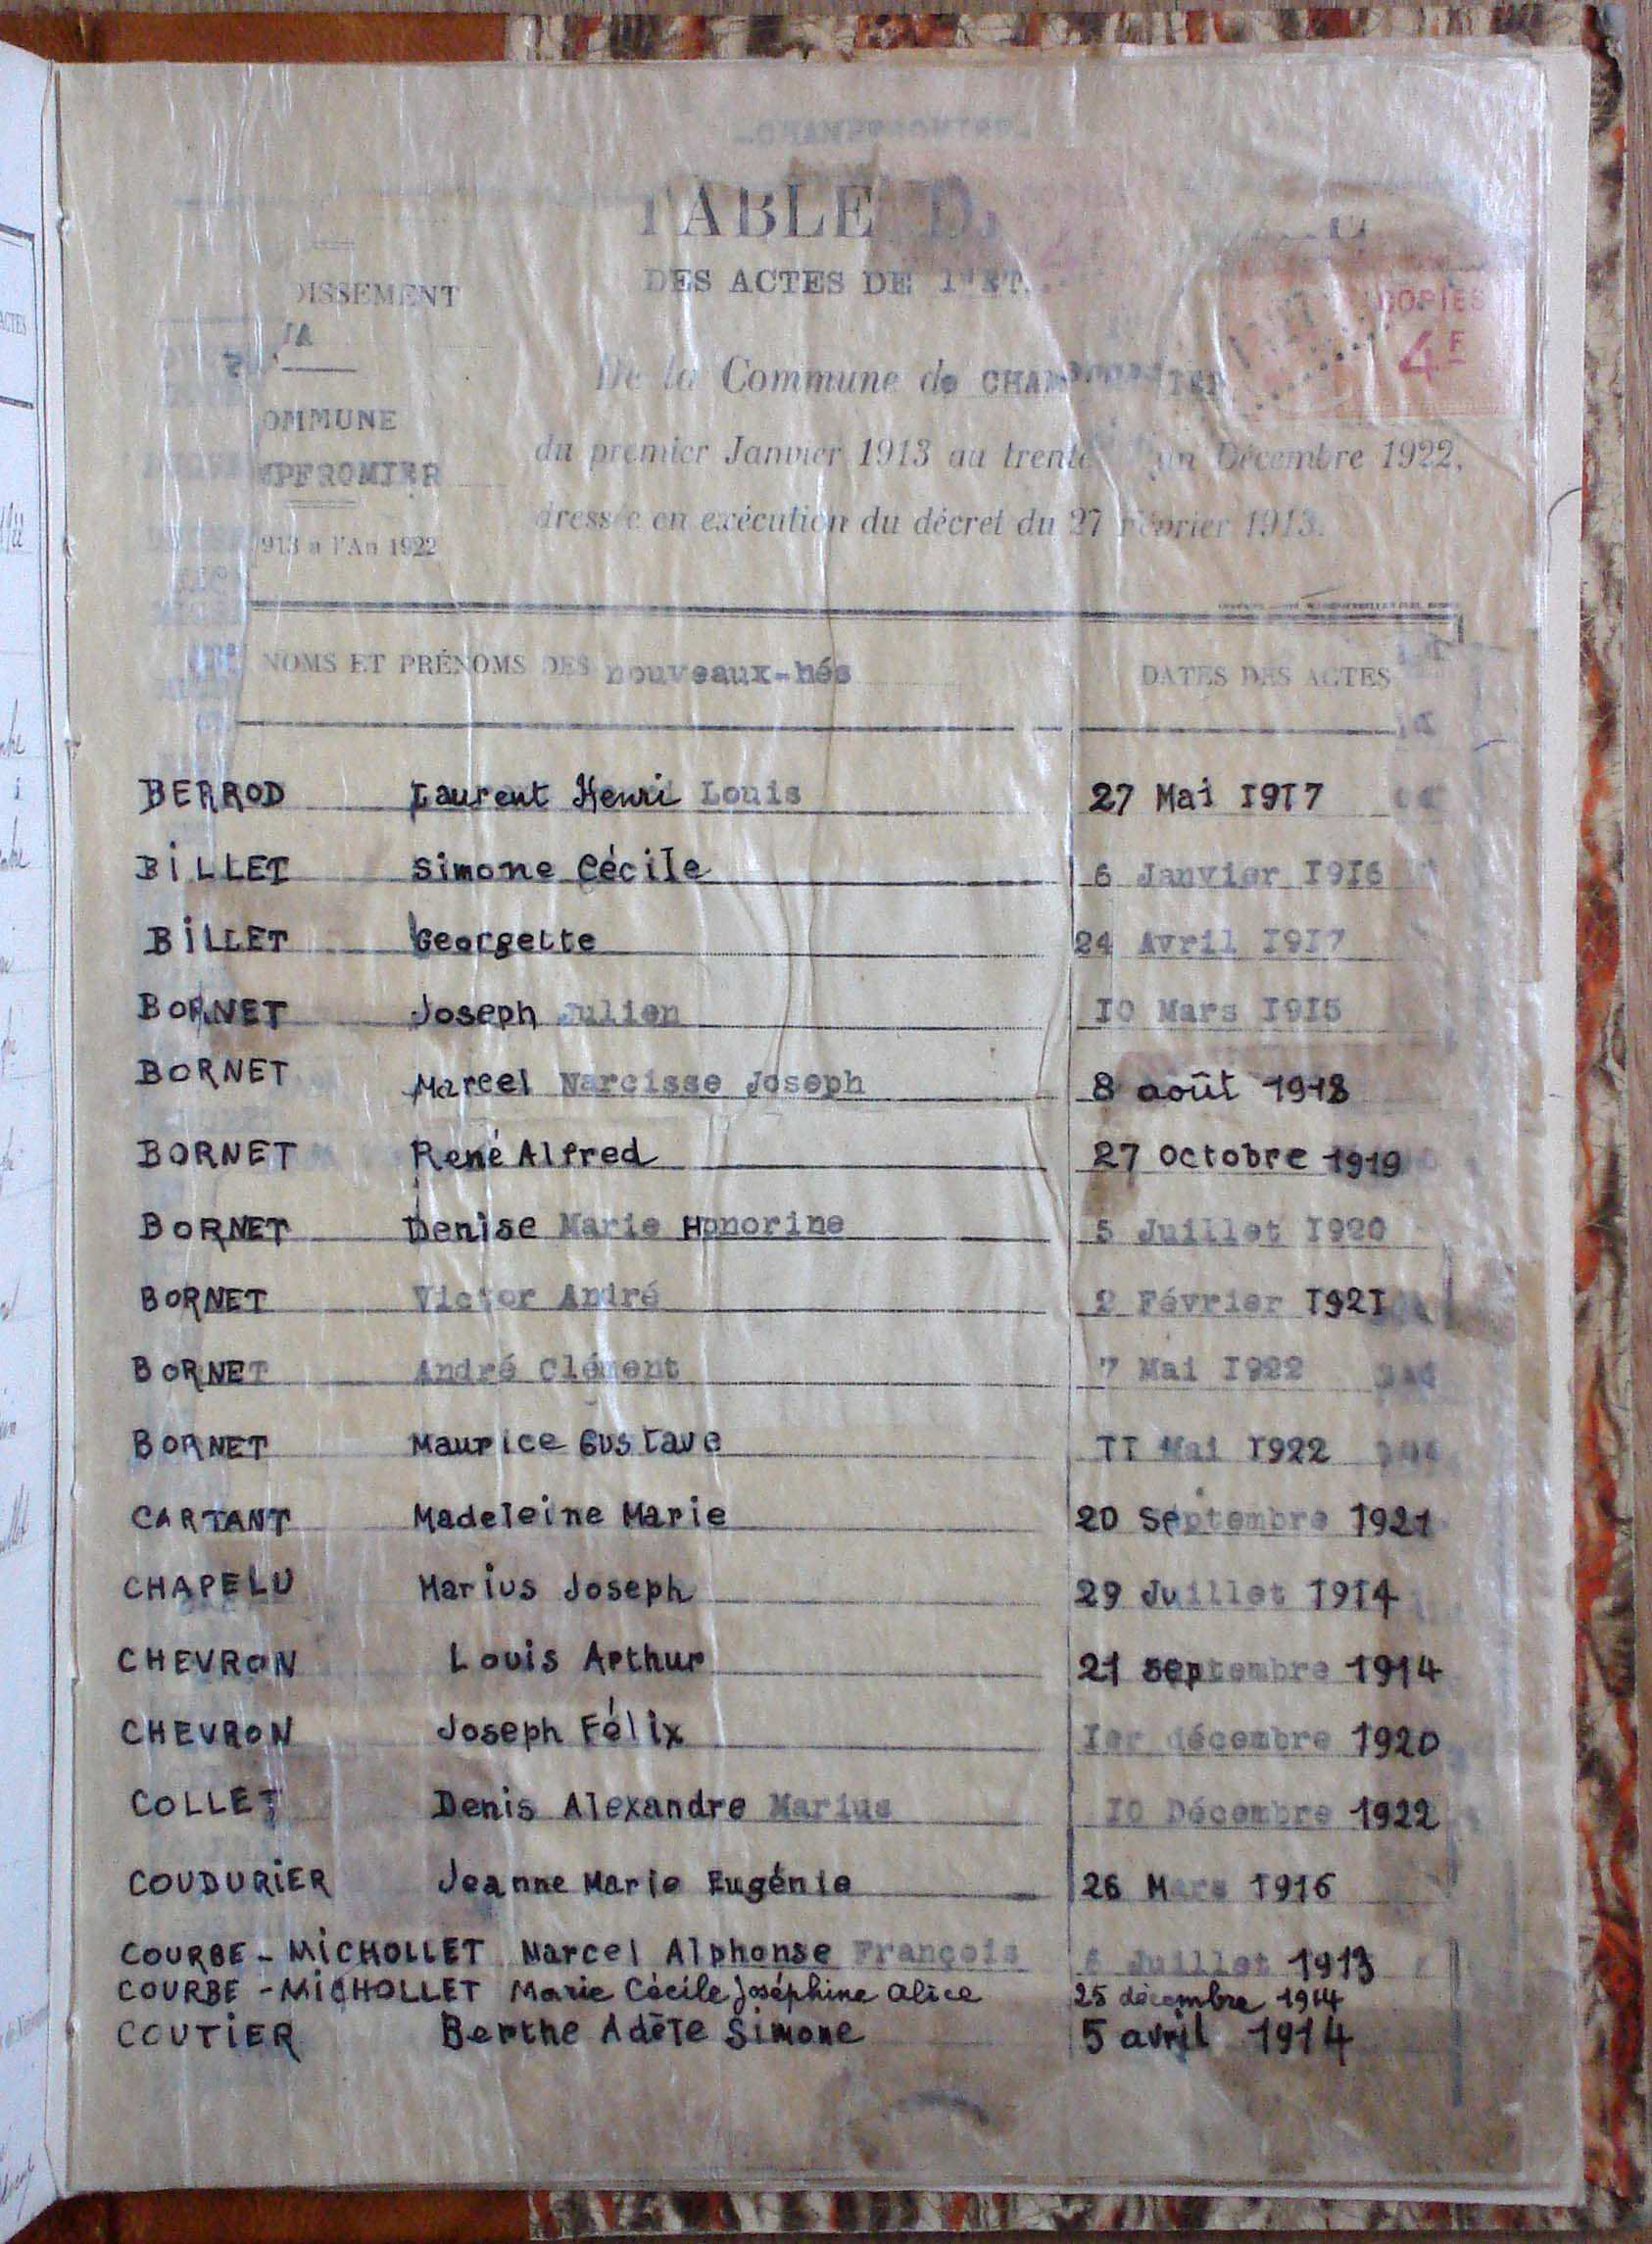 -CHAMPFROMIER-
TABLE D
DES ACTES DE l'ET
DISSEMENT
COPIES
4F
De la Commune de CHAMPFROMIER
OMMUNE
du premier Janvier 1913 au trente un Décembre 1922,
MPFROMIER
dressée en exécution du décret du 27 Février 1913.
913 a l'An 1922
NOMS ET PRÉNOMS DES nouveaux-nés DATES DES ACTES
BERROD Laurent Henri Louis 27 Mai I9I7
BILLET Simone Cécile 6 Janvier I9I6
BILLET Georgette 24 Avril I9I7
BORNET Joseph Julien I0 Mars I9I5
BORNET Marcel Narcisse Joseph 8 août 1918
BORNET René Alfred 27 octobre 1919
BORNET Denise Marie Honorine 5 Juillet I920
BORNET Victor André 2 Février I92I
BORNET André Clément 7 Mai I922
BORNET Maurice Gustave II Mai I922
CARTANT Madeleine Marie 20 Septembre 1921
CHAPELU Marius Joseph 29 Juillet I9I4
CHEVRON Louis Arthur 21 septembre 1914
CHEVRON Joseph Félix Ier décembre 1920
COLLET Denis Alexandre Marius I0 Décembre 1922
COUDURIER Jeanne Marie Eugénie 26 Mars I916
COURBE-MICHOLLET Marcel Alphonse François 6 Juillet 1913
COURBE-MICHOLLET Marie Cécile Joséphine Alice 25 décembre 1914
COUTIER Berthe Adèle Simone 5 avril 1914